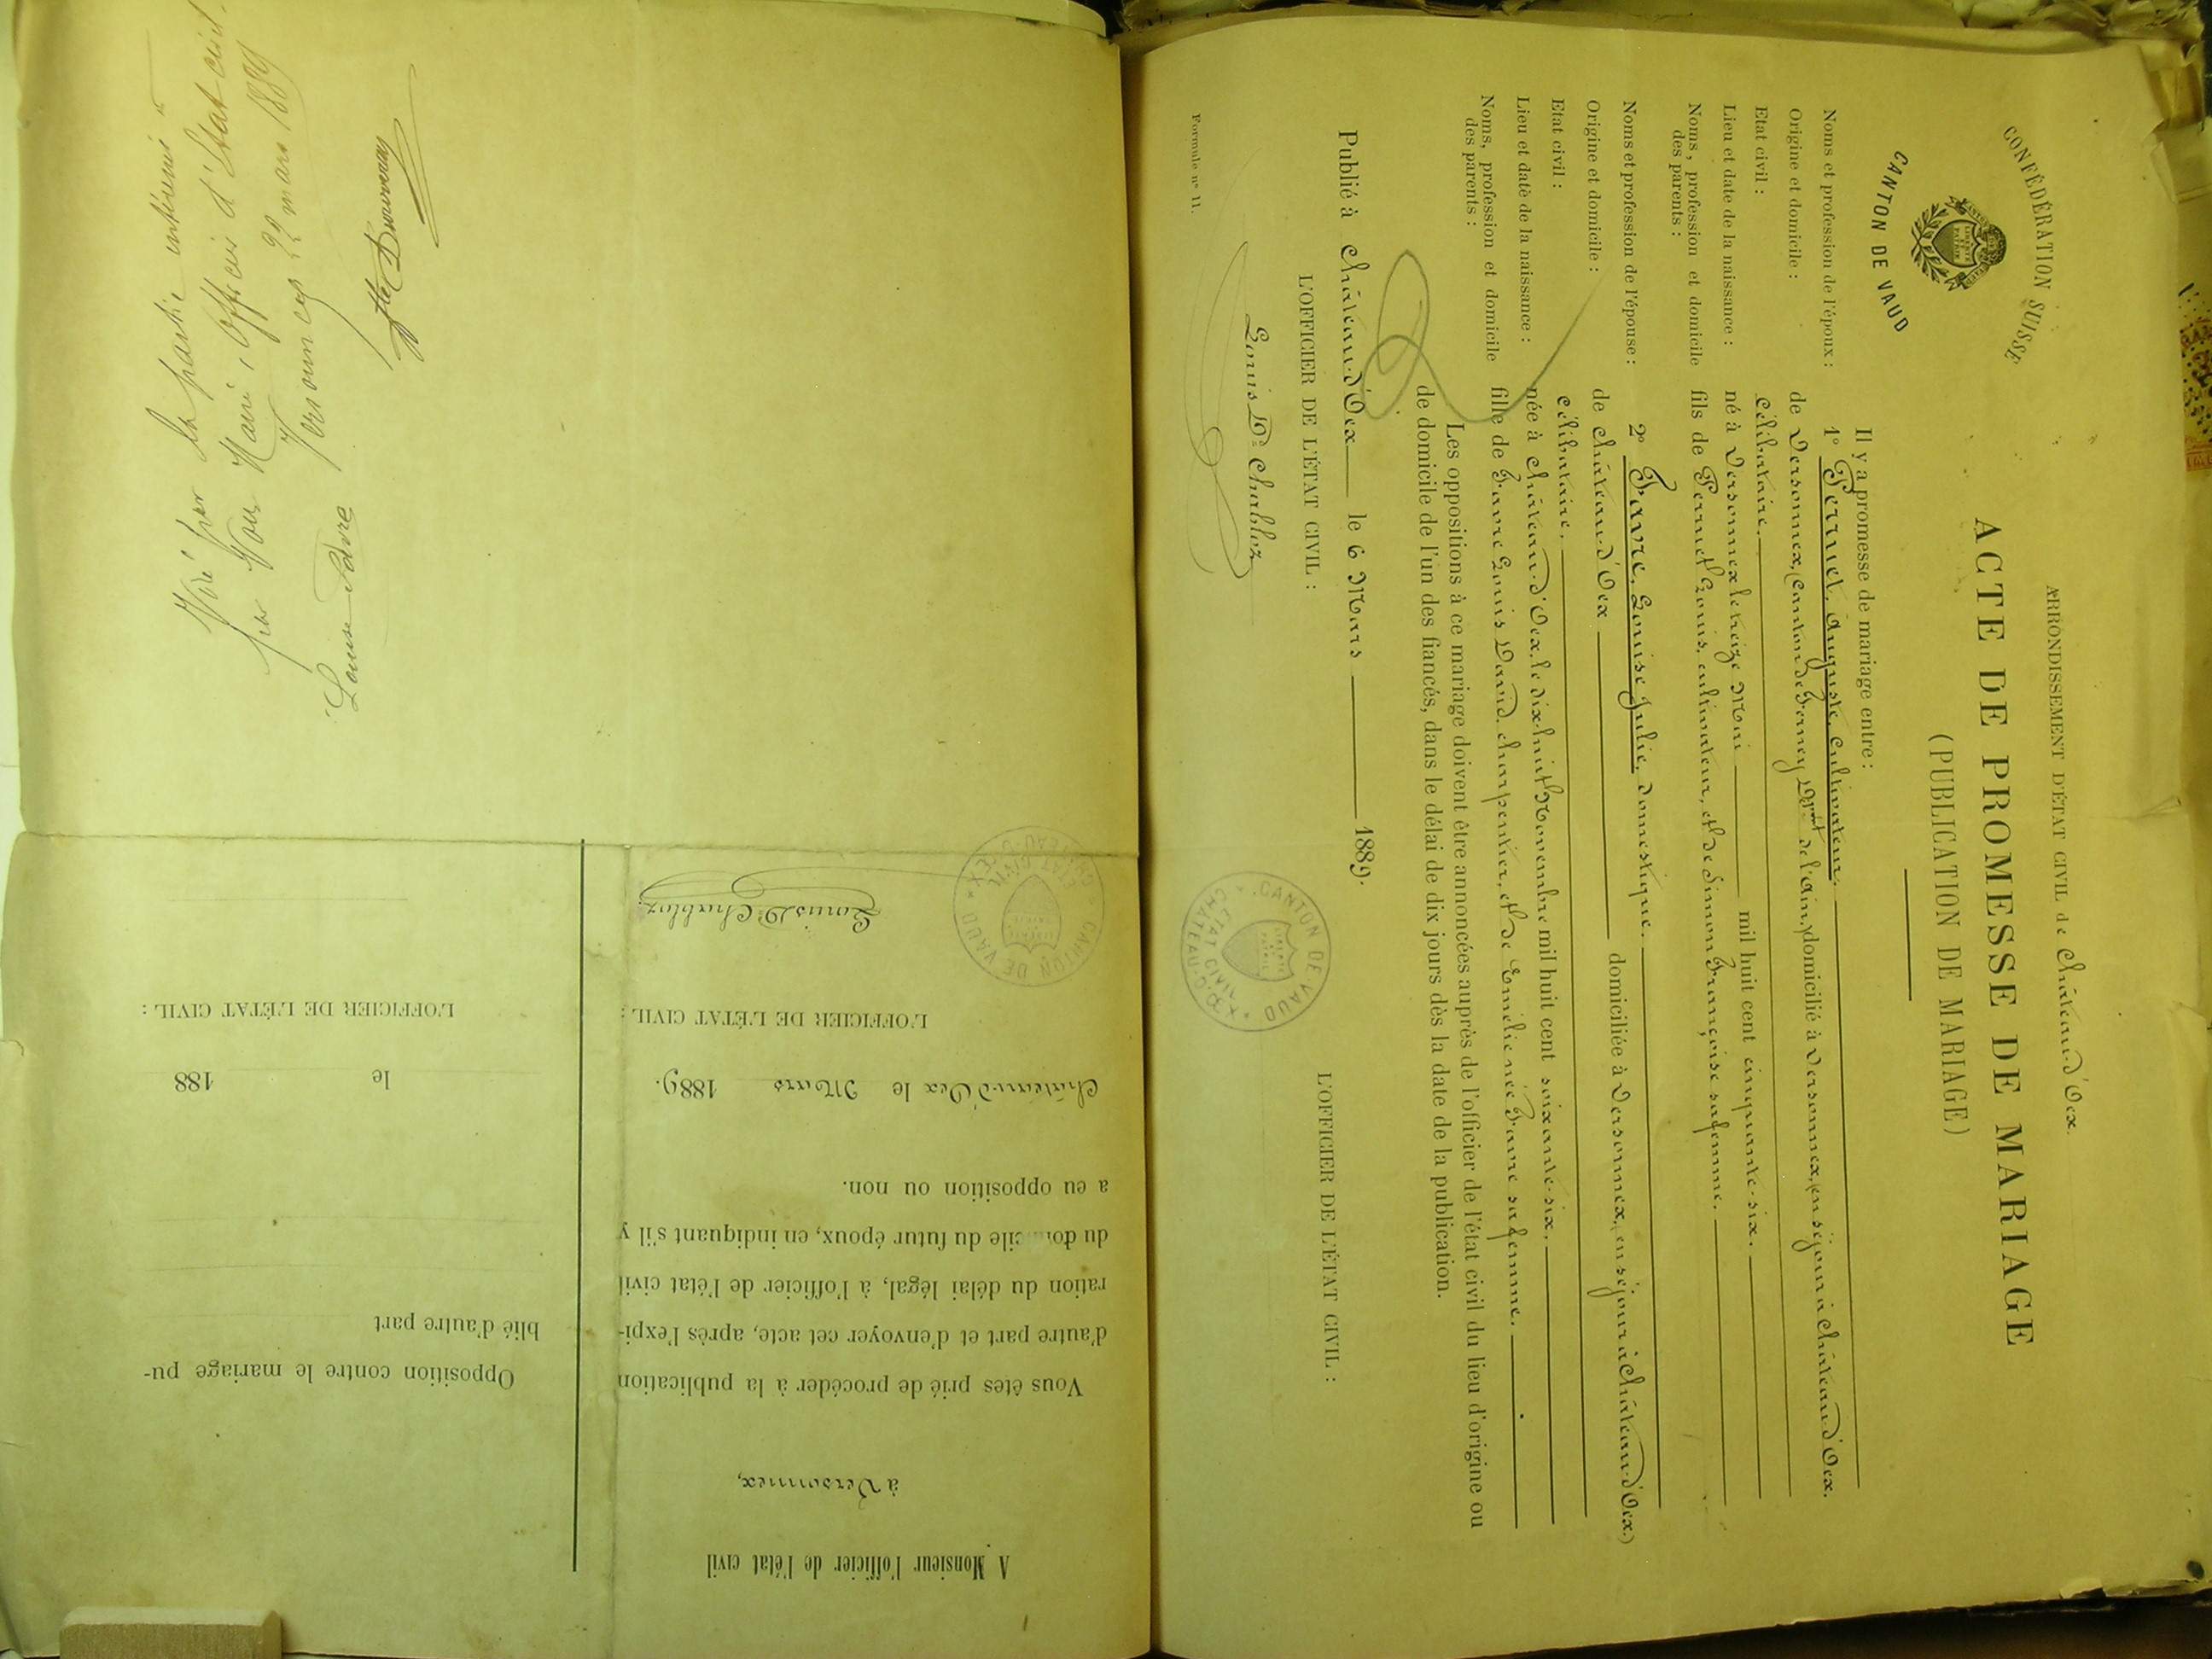 CONFÉDÉRATION SUISSE
CANTON DE VAUD
ARRONDISSEMENT D'ÉTAT CIVIL de Château-d'Oex.
ACTE DE PROMESSE DE MARIAGE
(PUBLICATION DE MARIAGE)
Il y a promesse de mariage entre :
Noms et profession de l'époux : 1° Perruet, Auguste, cultivateur.
Origine et domicile : de Versonnex, (Canton de Ferney Dépt de l'Ain) domicilié à Versonnex, en séjour à Château-d'Oex.
Etat civil : célibataire.
Lieu et date de la naissance : né à Versonnex le treize Mai mil huit cent cinquante-six.
Noms, profession et domicile des parents : fils de Perruet Louis, cultivateur, et de Simon Françoise sa femme.
Noms et profession de l'épouse : 2° Favre, Louise Julie, domestique.
Origine et domicile : de Château-d'Oex domiciliée à Versonnex, en séjour à Château-d'Oex)
Etat civil : célibataire.
Lieu et date de la naissance : née à Château-d'Oex, le dix-huit Novembre mil huit cent soixante-six.
Noms, profession et domicile des parents : fille de Favre Louis David, charpentier, et de Emélie née Favre sa femme.
Les oppositions à ce mariage doivent être annoncées auprès de l'officier de l'état civil du lieu d'origine ou
de domicile de l'un des fiancés, dans le délai de dix jours dès la date de la publication.
Publié à Château-d'Oex le 6 Mars 1889.
L'OFFICIER DE L'ÉTAT CIVIL :
L'OFFICIER DE L'ÉTAT CIVIL :
Louis Dd Chabloz
CANTON DE VAUD
ETAT CIVIL
CHATEAU-D'ŒX
LIBERTÉ ET PATRIE
Formule n° 11.
A Monsieur l'officier de l'état civil
à Versonnex,
Vous êtes prié de procéder à la publication
d'autre part et d'envoyer cet acte, après l'expi-
ration du délai légal, à l'officier de l'état civil
du domicile du futur époux, en indiquant s'il y
a eu opposition ou non.
Château-d'Oex le Mars 1889.
L'OFFICIER DE L'ÉTAT CIVIL :
Louis Dd Chabloz
CANTON DE VAUD
ETAT CIVIL
CHATEAU-D'ŒX
Opposition contre le mariage pu-
blié d'autre part
le 188
L'OFFICIER DE L'ÉTAT CIVIL :
Visé par la partie intéressée &
par Nous Maire, Officier d'Etat-civil.
Versonnex 22 mars 1889
Louise Favre